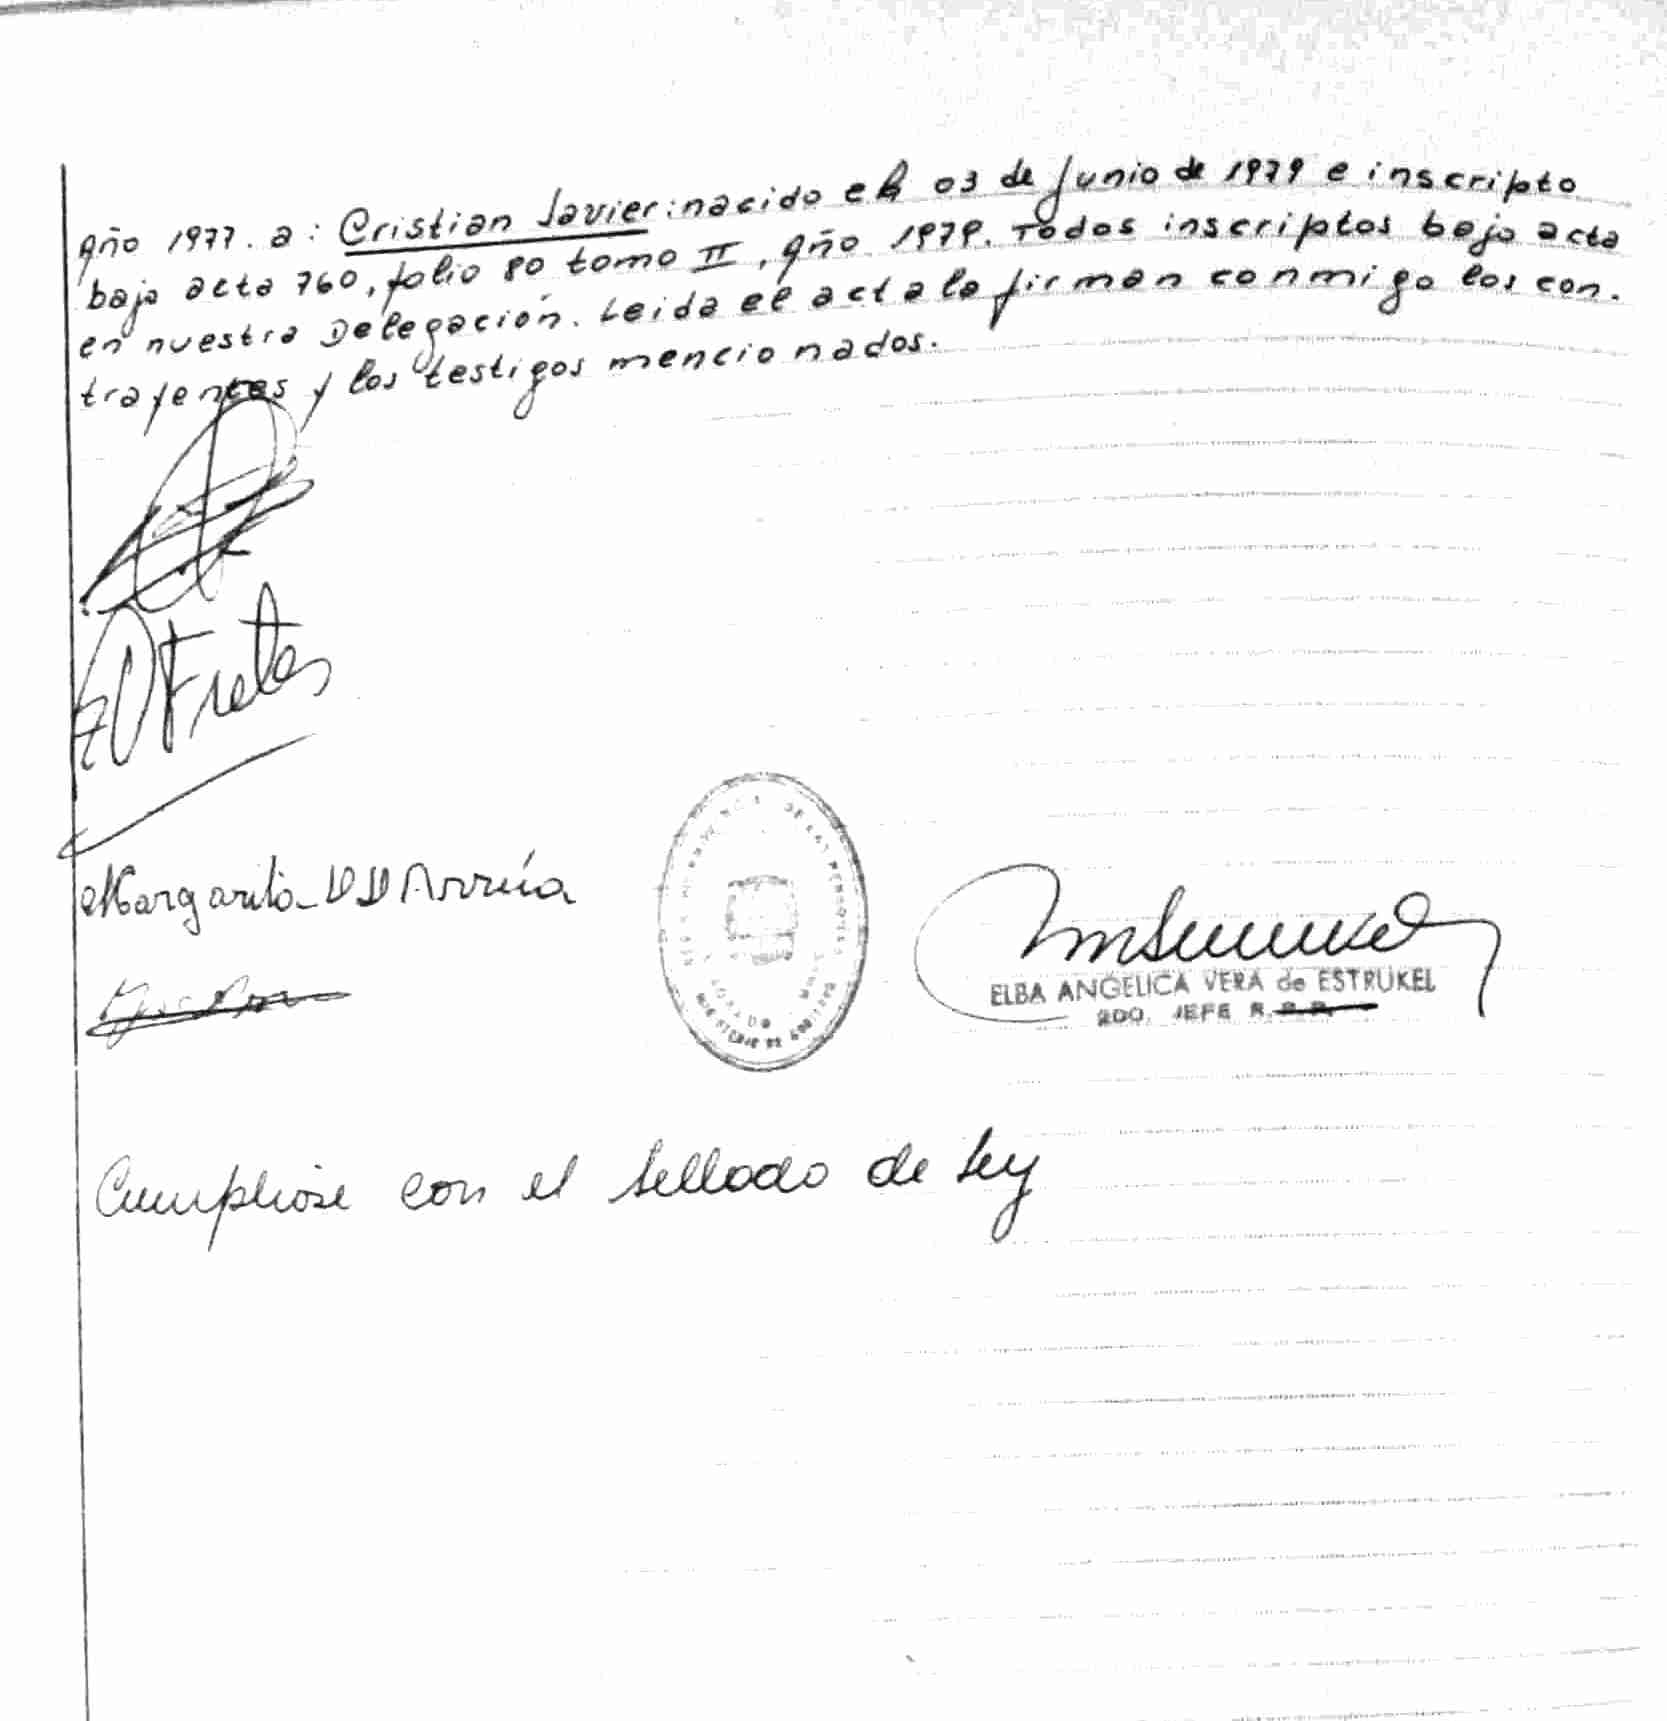 Año 1977. a: Cristian Javier: nacido el 03 de Junio de 1979 e inscripto
bajo acta 760, folio 80 tomo II, Año 1979. Todos inscriptos bajo acta
en nuestra Delegación. Leida el acta la firman conmigo los con.
trayentes y los testigos mencionados.
Fretes
Margarita
ELBA ANGELICA VERA de ESTRUKEL
2DO. JEFE R.
Cumpliose con el sellado de ley